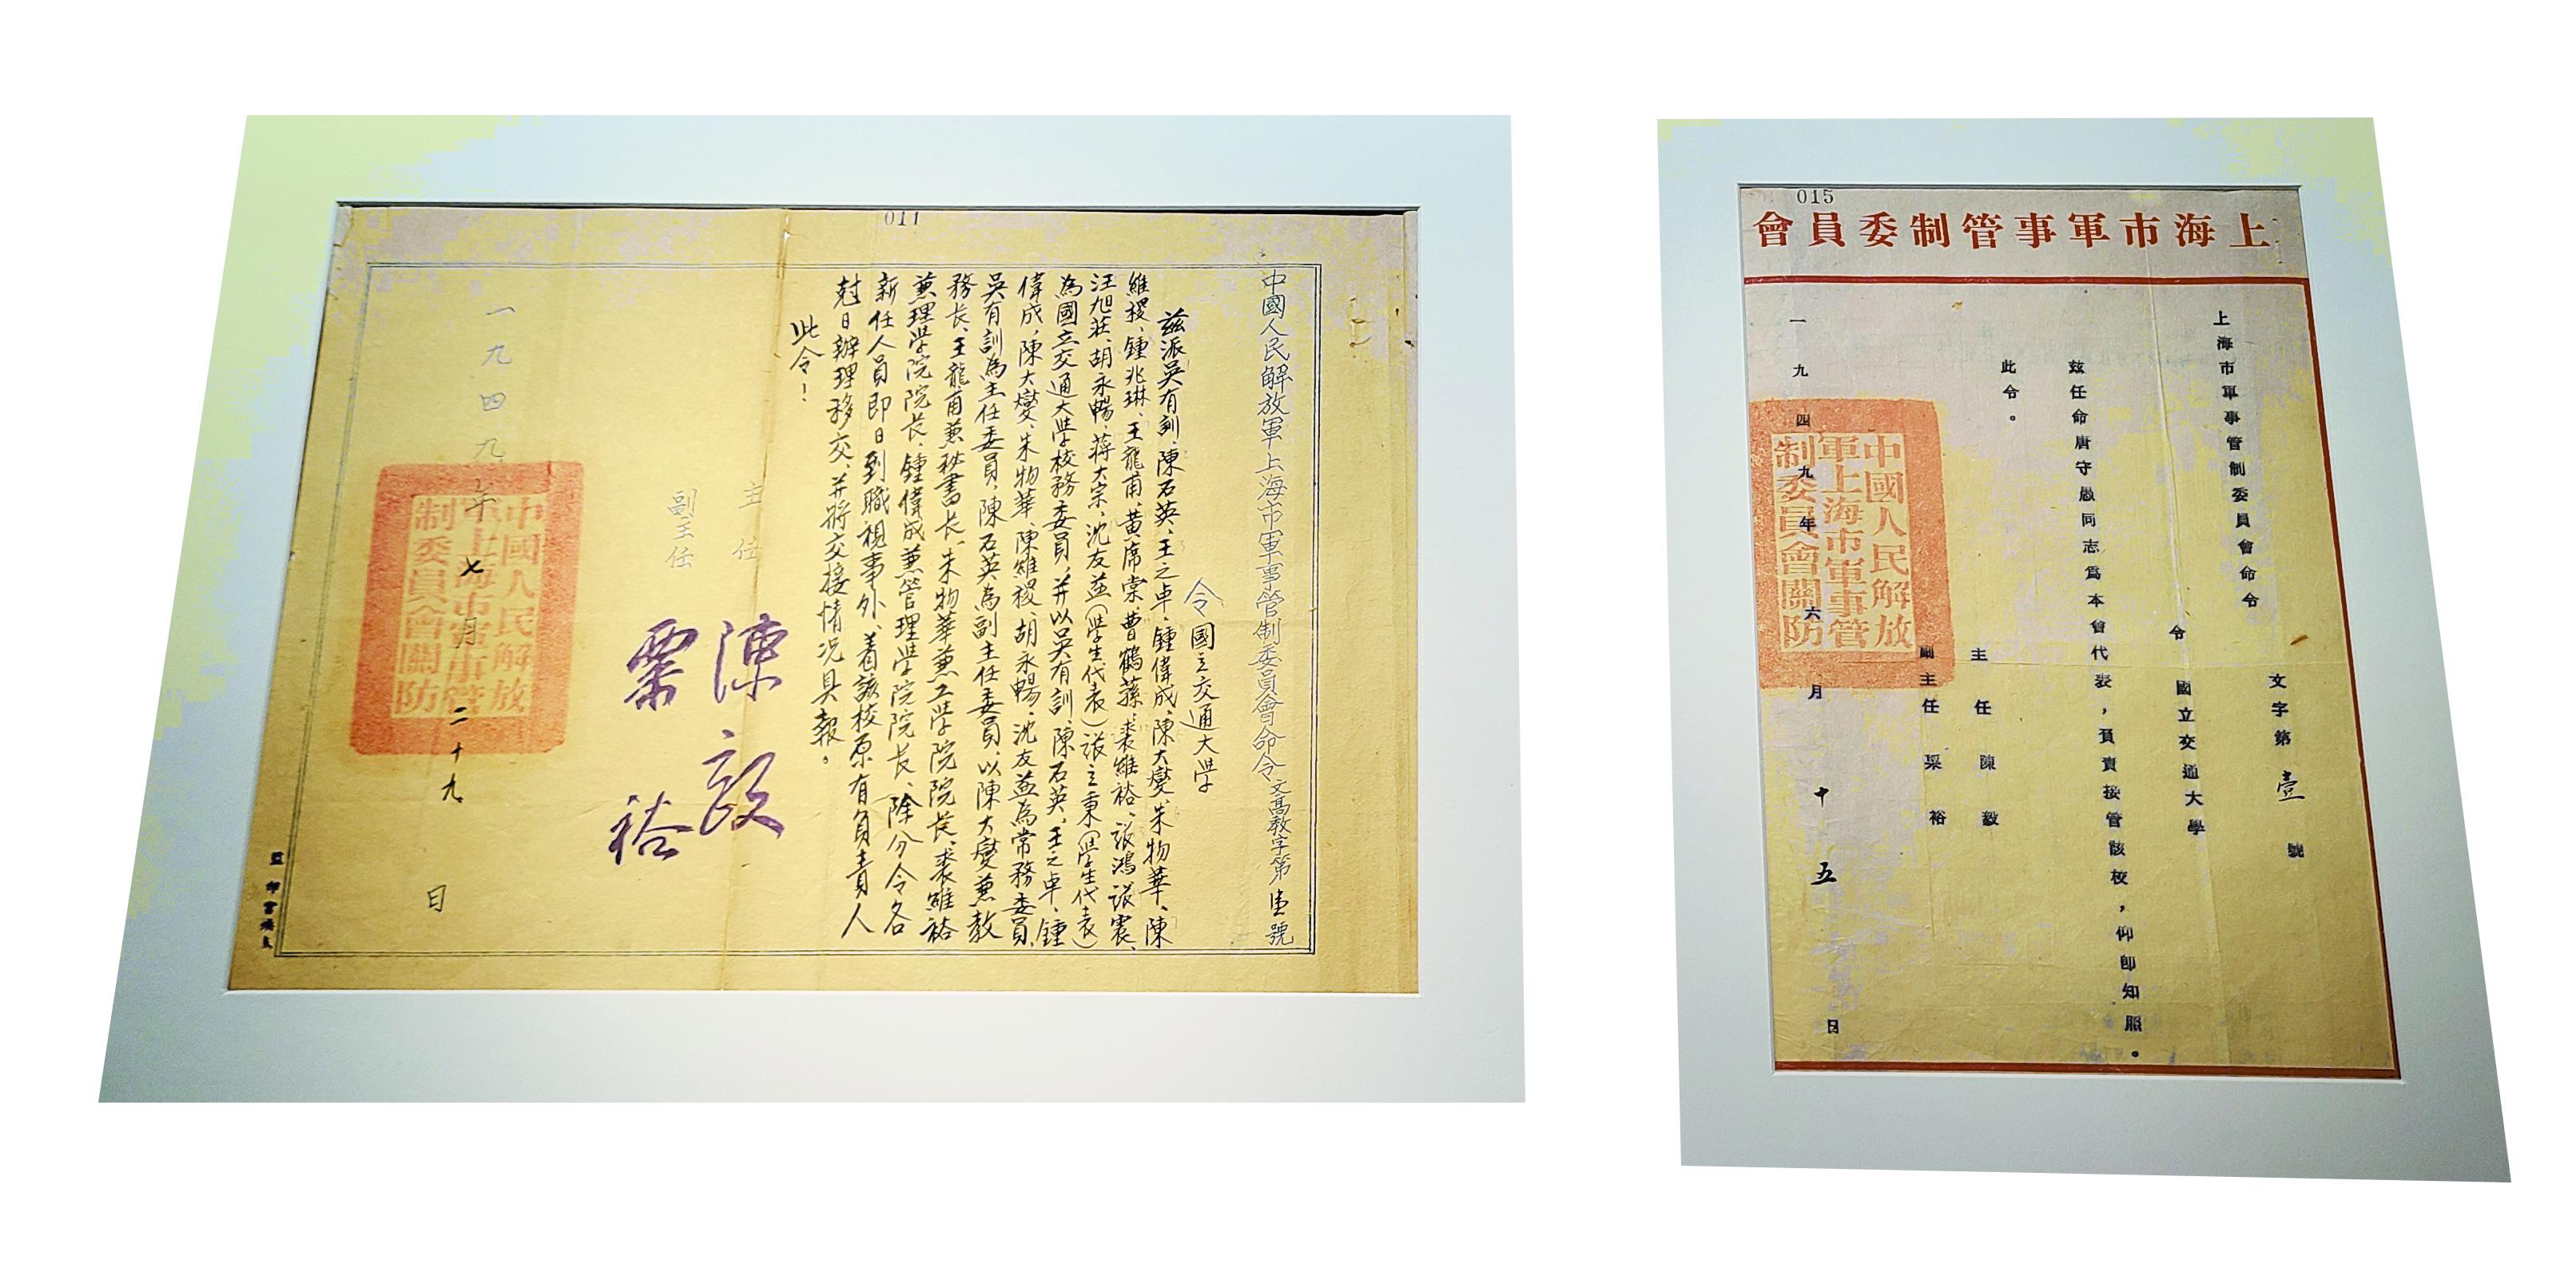 011
中國人民解放軍上海市軍事管制委員會命令 文高教字第壹號
令國立交通大学
茲派吳有訓、陳石英、王之卓、鍾偉成、陳大燮、朱物華、陳
維稷、鍾兆琳、王龍甫、黃席棠、曹鶴蓀、裘維裕、張鴻、張震、
汪旭莊、胡永暢、蔣大宗、沈友益（學生代表）張立秉（學生代表）
為國立交通大学校務委員，并以吳有訓、陳石英、王之卓、鍾
偉成、陳大燮、朱物華、陳維稷、胡永暢、沈友益為常務委員，
吳有訓為主任委員，陳石英為副主任委員，以陳大燮兼教
務長、王龍甫兼秘書長、朱物華兼工學院院長、裘維裕
兼理学院院長、鍾偉成兼管理学院院長、除分令各
新任人員即日到職視事外、着該校原有負責人
尅日辦理移交、并將交接情況具報。
此令！
主任 陳毅
副主任 粟裕
一九四九年七月二十九日
中國人民解放
軍上海市軍事管
制委員會關防
015
上海市軍事管制委員會
文字第壹號
上海市軍事管制委員會命令
令國立交通大學
茲任命唐守愚同志爲本會代表，負責接管該校，仰即知照。
此令。
主任陳毅
副主任粟裕
一九四九年六月十五日
中國人民解放
軍上海市軍事管
制委員會關防